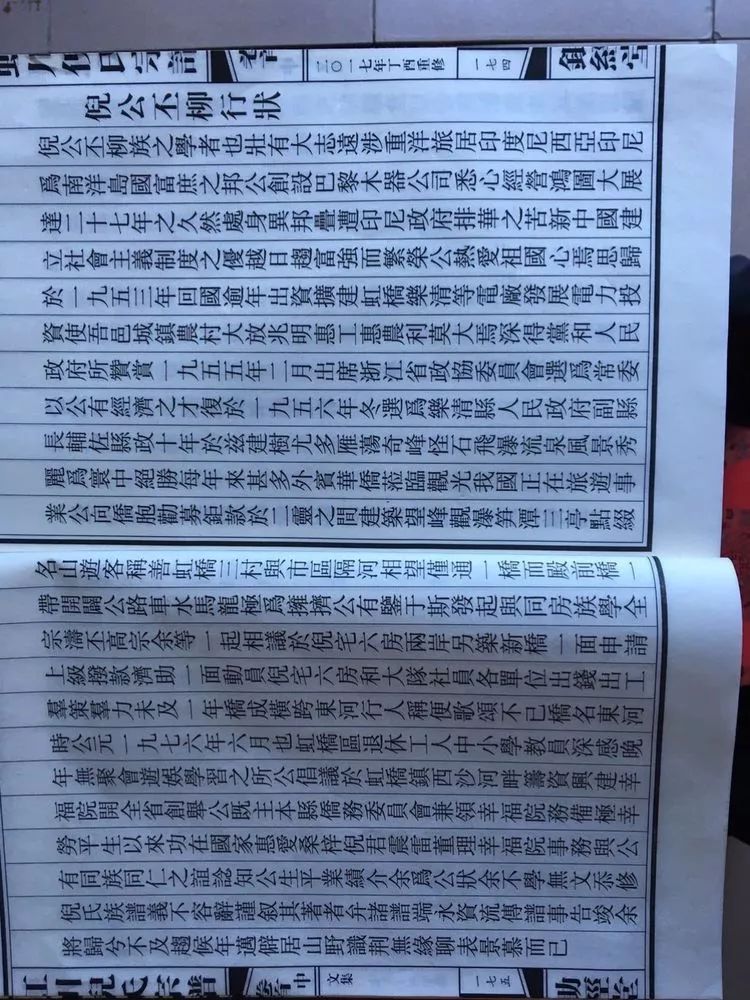 二〇一七年丁酉重修
一七四
倪公丕柳行狀
倪公丕柳族之學者也壯有大志遠涉重洋旅居印度尼西亞印尼
爲南洋島國富庶之邦公創設巴黎木器公司悉心經營鴻圖大展
達二十七年之久然處身異邦疊遭印尼政府排華之苦新中國建
立社會主義制度之優越日趨富強而繁榮公熱愛祖國心焉思歸
於一九五三年回國逾年出資擴建虹橋樂清等電廠發展電力投
資使吾邑城鎮農村大放兆明惠工惠農利莫大焉深得黨和人民
政府所贊賞一九五五年二月出席浙江省政協委員會選爲常委
以公有經濟之才復於一九五六年冬選爲樂清縣人民政府副縣
長輔佐縣政十年於玆建樹尤多雁蕩奇峰怪石飛瀑流泉風景秀
麗爲寰中絕勝每年來甚多外賓華僑蒞臨觀光我國正在旅遊事
業公向僑胞勸募鉅款於二靈之間建築望峰觀瀑筍潭三亭點綴
名山遊客稱善虹橋三村與市區隔河相望僅通一橋而殿前橋一
帶開闢公路車水馬龍極爲擁擠公有鑒于斯發起與同房族學全
宗濤丕高宗余等一起相議於倪宅六房兩岸另築新橋一面申請
上級撥款濟助一面動員倪宅六房和大隊社員各單位出錢出工
羣策羣力未及一年橋成橫跨東河行人稱便歌頌不已橋名東河
時公元一九七六年六月也虹橋區退休工人中小學教員深感晚
年無聚會遊娛學習之所公倡議於虹橋鎮西沙河畔籌資興建幸
福院開全省創舉公既主本縣僑務委員會兼領幸福院務備極幸
勞平生以來功在國家惠愛桑梓倪君震雷董理幸福院事務與公
有同族同仁之誼諗知公生平業績介余爲公狀余不學無文忝修
倪氏族譜義不容辭謹叙其著者弁諸譜端水資流傳譜事告竣余
將歸兮不及趨候年邁僻居山野識荆無緣聊表景慕而已
中
文集
一七五